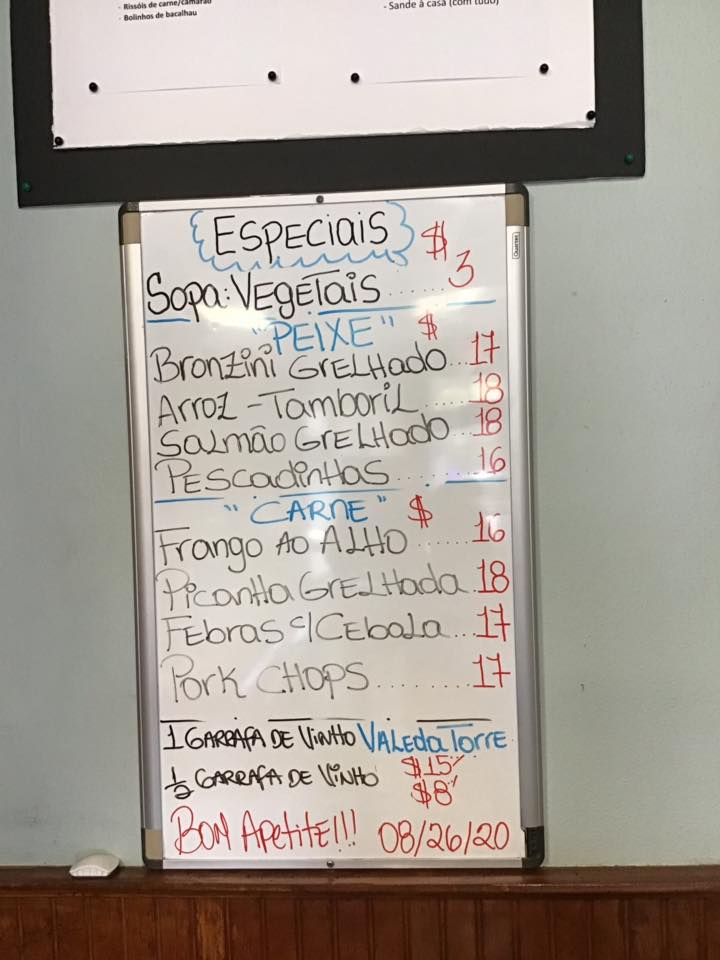 - Rissóis de carne/camarão
- Bolinhos de bacalhau
- Sande à casa (com tudo)
ESPECIAIS $
SOPA: VEGETAIS ...... 3
"PEIXE" $
BRONZINI GRELHADO... 17
ARROZ - TAMBORIL ..... 18
SALMÃO GRELHADO ... 18
PESCADINHAS ....... 16
"CARNE" $
FRANGO AO ALHO ...... 16
PICANHA GRELHADA . 18
FEBRAS C/CEBOLA ... 17
PORK CHOPS ........ 17
1 GARRAFA DE VINHO VALE da TORRE
$15
1/2 GARRAFA DE VINHO $8
BOM APETITE!!! 08/26/20